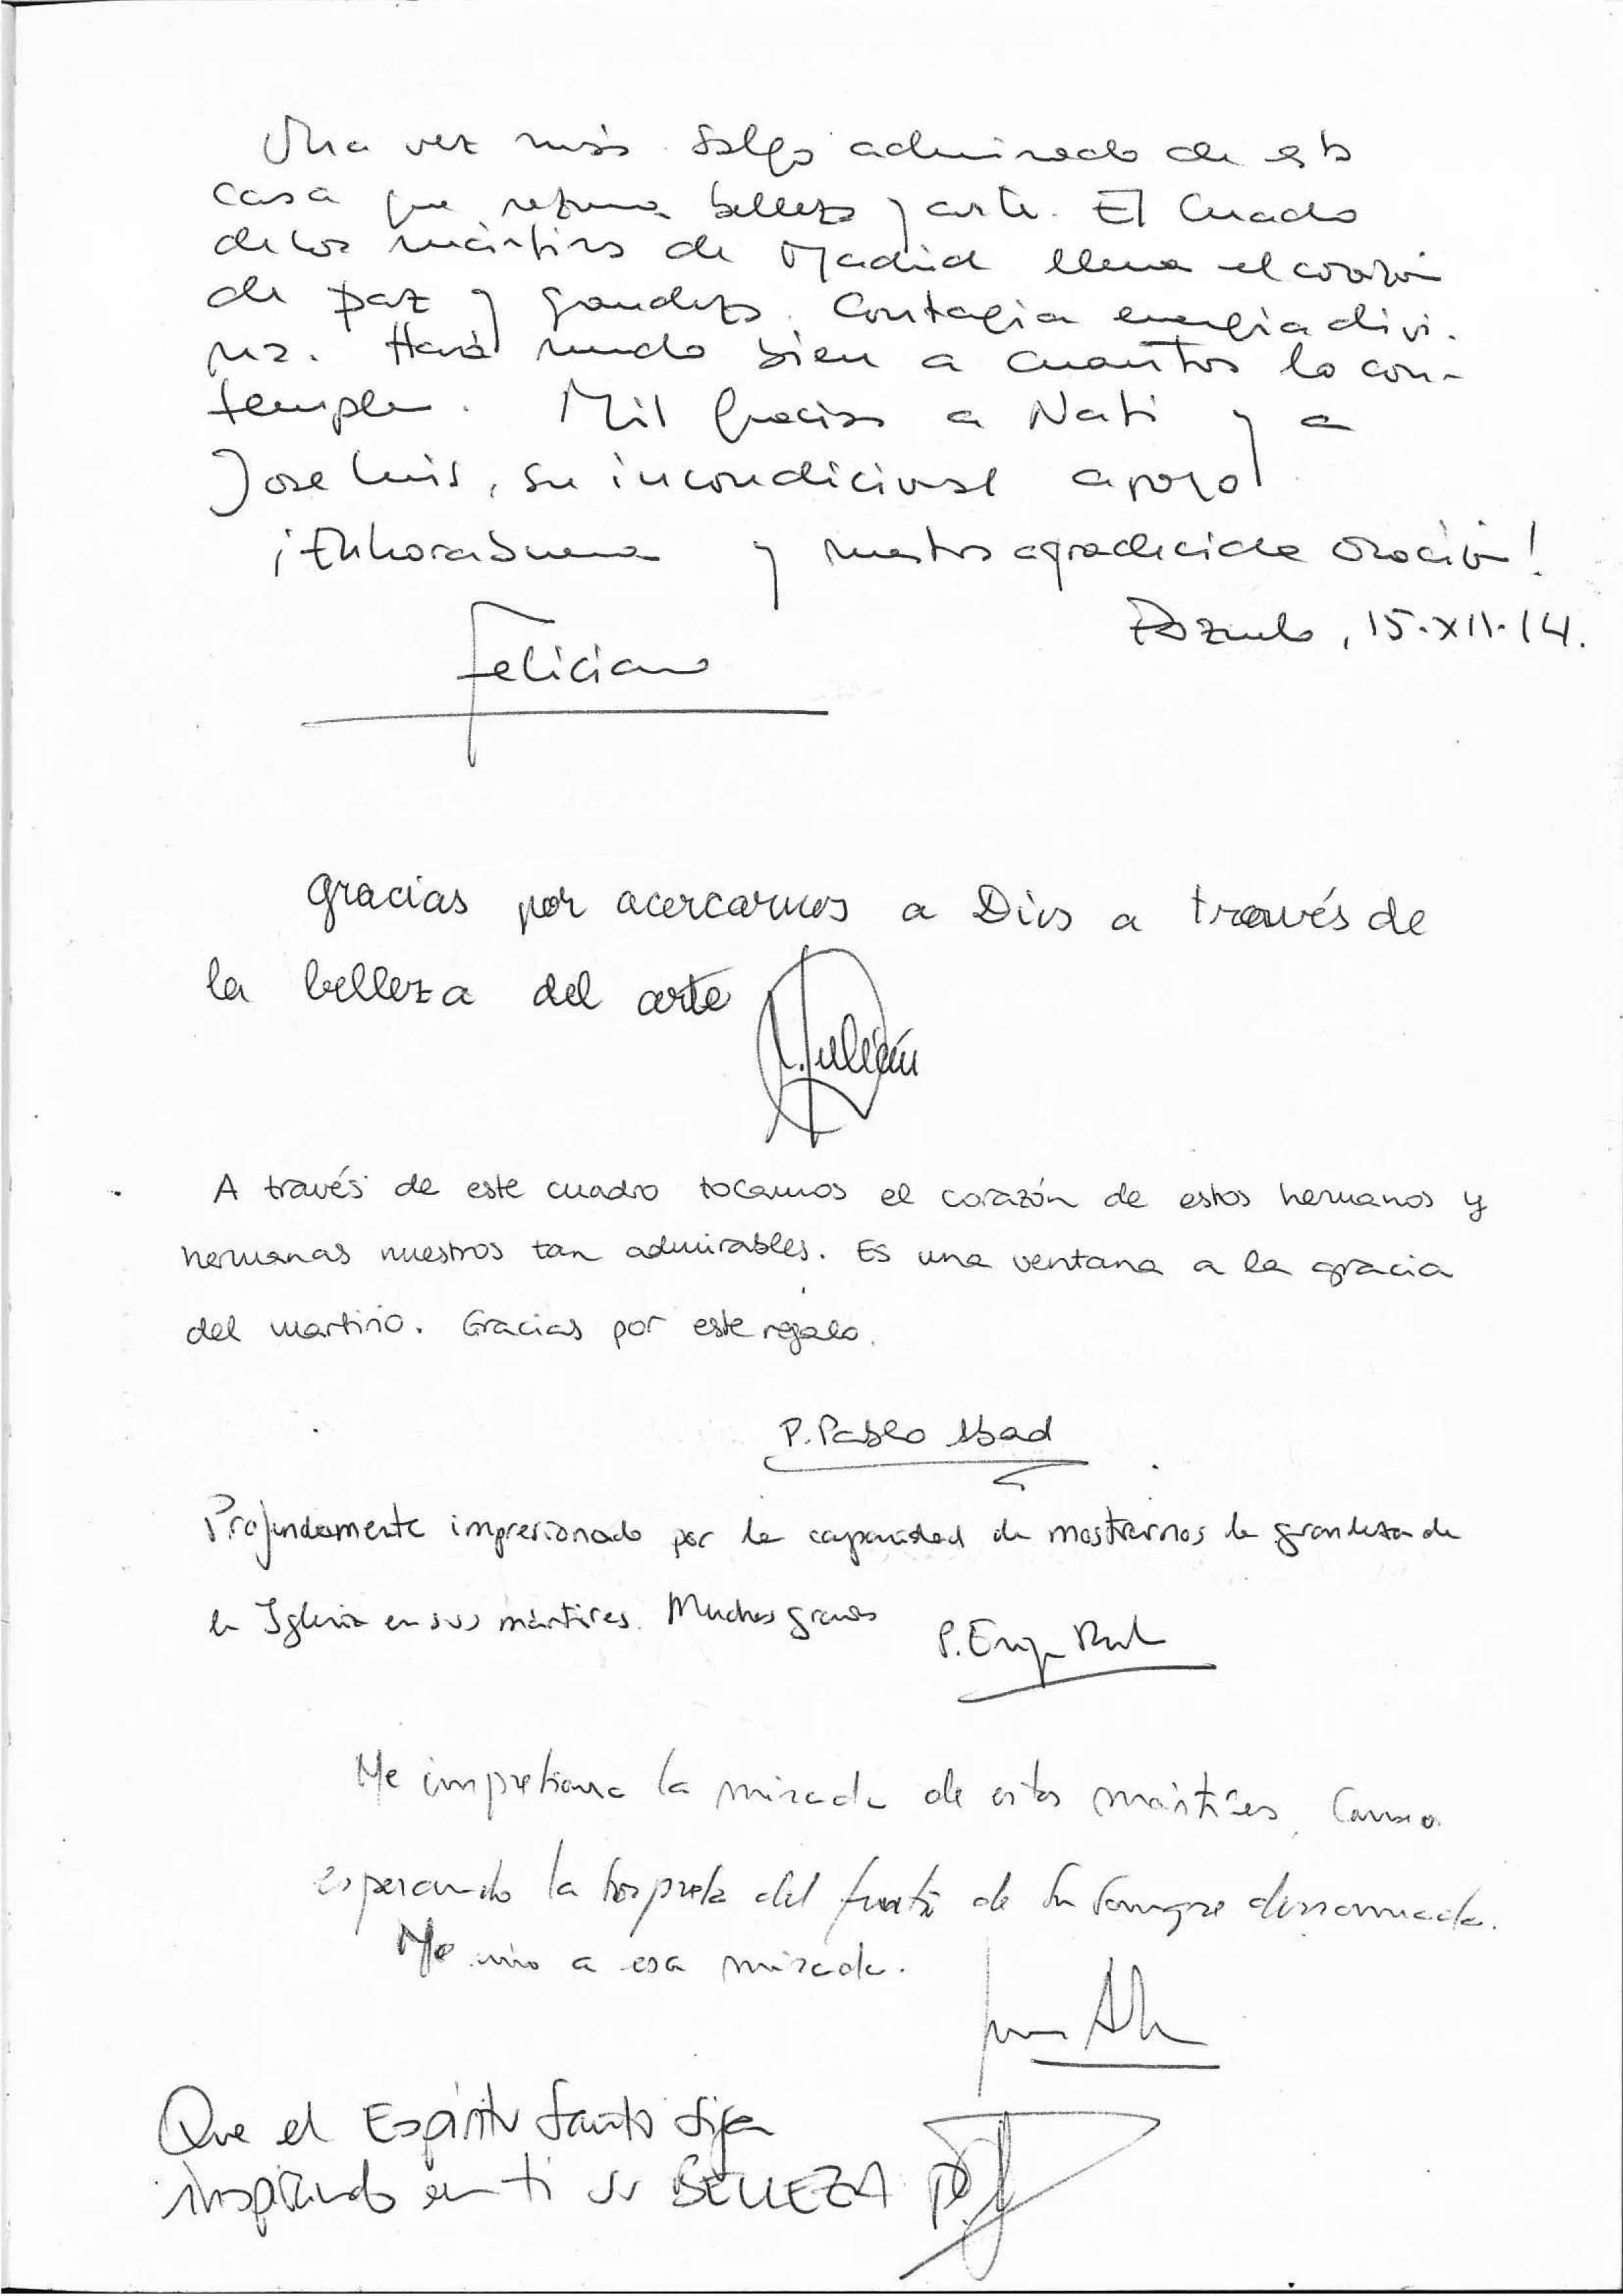 Una vez más salgo admirado de esta
casa que rezuma belleza y arte. El Cuadro
de los mártires de Madrid llena el corazón
de paz y grandeza. Contagia energía divi-
na. Hará mucho bien a cuantos lo con-
templen. Mil gracias a Nati y a
Jose Luis, su incondicional apoyo.
¡Enhorabuena y nuestra agradecida oración!
Pozuelo, 15-XII-14.
Feliciano
Gracias por acercarnos a Dios a través de
la belleza del arte
Julián
A través de este cuadro tocamos el corazón de estos hermanos y
hermanas nuestros tan admirables. Es una ventana a la gracia
del martirio. Gracias por este regalo.
P. Pablo Abad
Profundamente impresionado por la capacidad de mostrarnos la grandeza de
la Iglesia en sus mártires. Muchas gracias
P.
Me impresiona la mirada de estos mártires, como
esperando la sorpresa del fruto de su sangre derramada.
Me uno a esa mirada.
Que el Espíritu Santo siga
inspirando en ti su BELLEZA